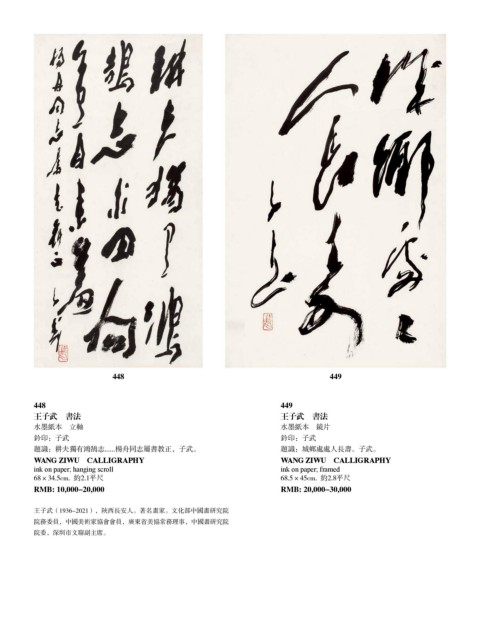 耕夫獨有鴻
鵠志求田問
楊舟同志屬書教正 子武
城鄉處處
人長壽
子武
448
449
448
王子武 書法
水墨紙本 立軸
鈐印:子武
題識:耕夫獨有鴻鵠志......楊舟同志屬書教正,子武。
WANG ZIWU CALLIGRAPHY
ink on paper; hanging scroll
68 × 34.5cm. 約2.1平尺
RMB: 10,000~20,000
王子武(1936~2021),陝西長安人。著名畫家。文化部中國畫研究院
院務委員,中國美術家協會會員,廣東省美協常務理事,中國畫研究院
院委,深圳市文聯副主席。
449
王子武 書法
水墨紙本 鏡片
鈐印:子武
題識:城鄉處處人長壽。子武。
WANG ZIWU CALLIGRAPHY
ink on paper; framed
68.5 × 45cm. 約2.8平尺
RMB: 20,000~30,000